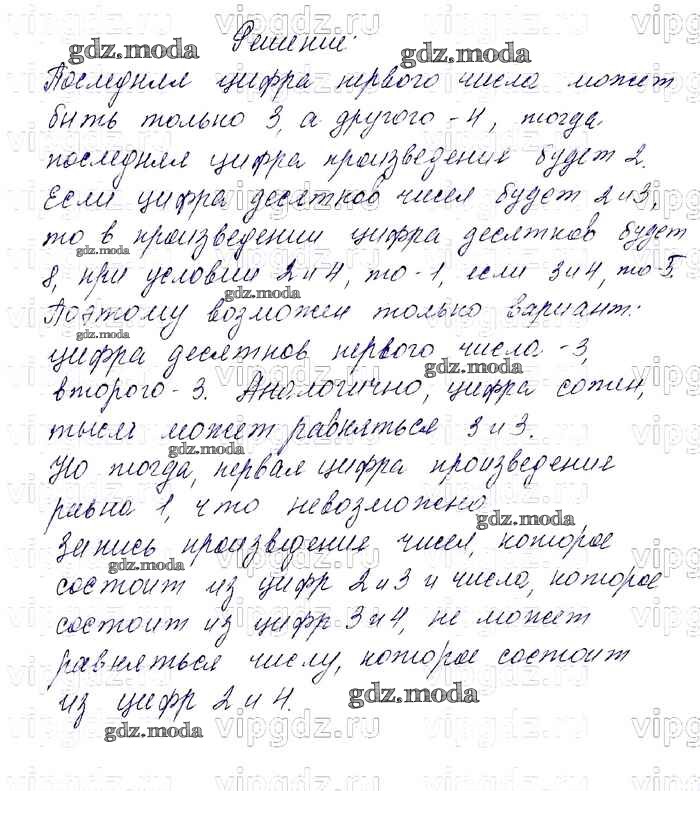 Решение:
Последняя цифра первого числа может
быть только 3, а другого - 4, тогда
последняя цифра произведение будет 2.
Если цифра десятков чисел будет 2 и 3,
то в произведении цифра десятков будет
8, при условии 2 и 4, то - 1, если 3 и 4, то - 5.
Поэтому возможен только вариант:
цифра десятков первого числа - 3,
второго - 3. Аналогично, цифра сотен,
тысяч может равняться 3 и 3.
Но тогда, первая цифра произведение
равна 1, что невозможно
Запись произведения чисел, которое
состоит из цифр 2 и 3 и числа, которое
состоит из цифр 3 и 4, не может
равняться числу, которое состоит
из цифр 2 и 4.
gdz.moda
vipgdz.ru